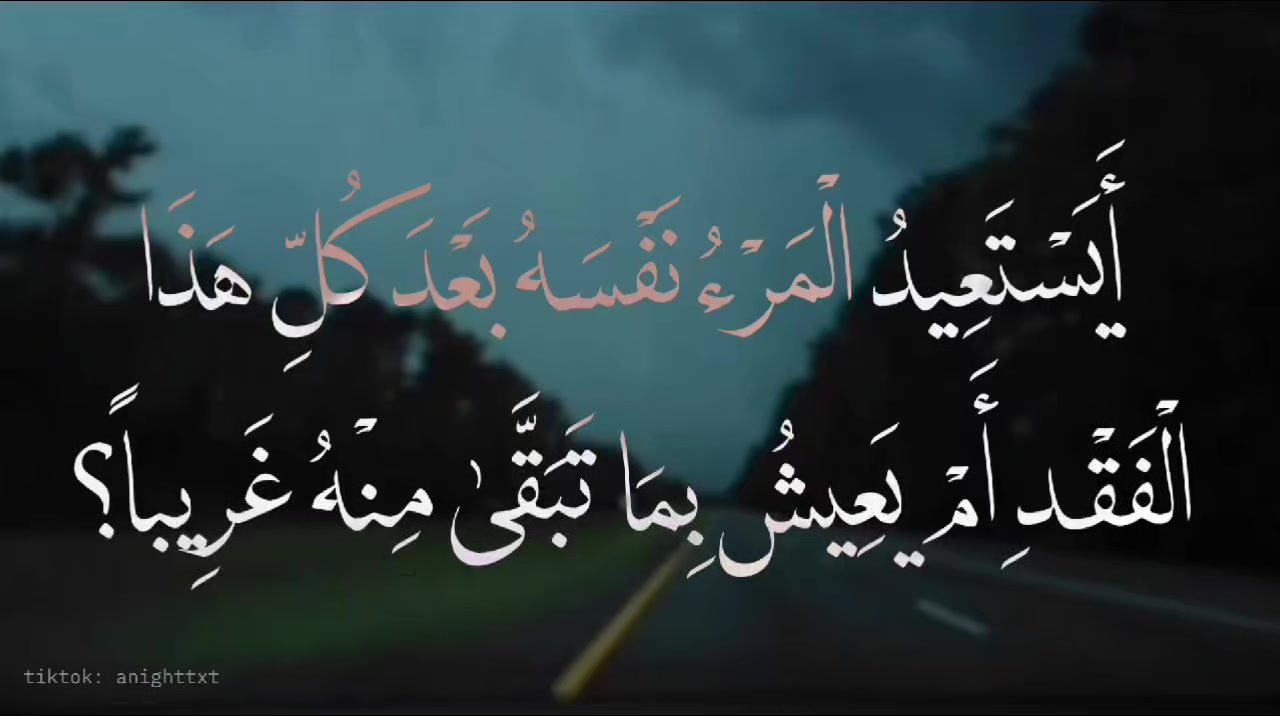 أَيَسْتَعِيدُ الْمَرْءُ نَفْسَهُ بَعْدَ كُلِّ هَذَا
الْفَقْدِ أَمْ يَعِيشُ بِمَا تَبَقَّىٰ مِنْهُ غَرِيباً؟
tiktok: anighttxt